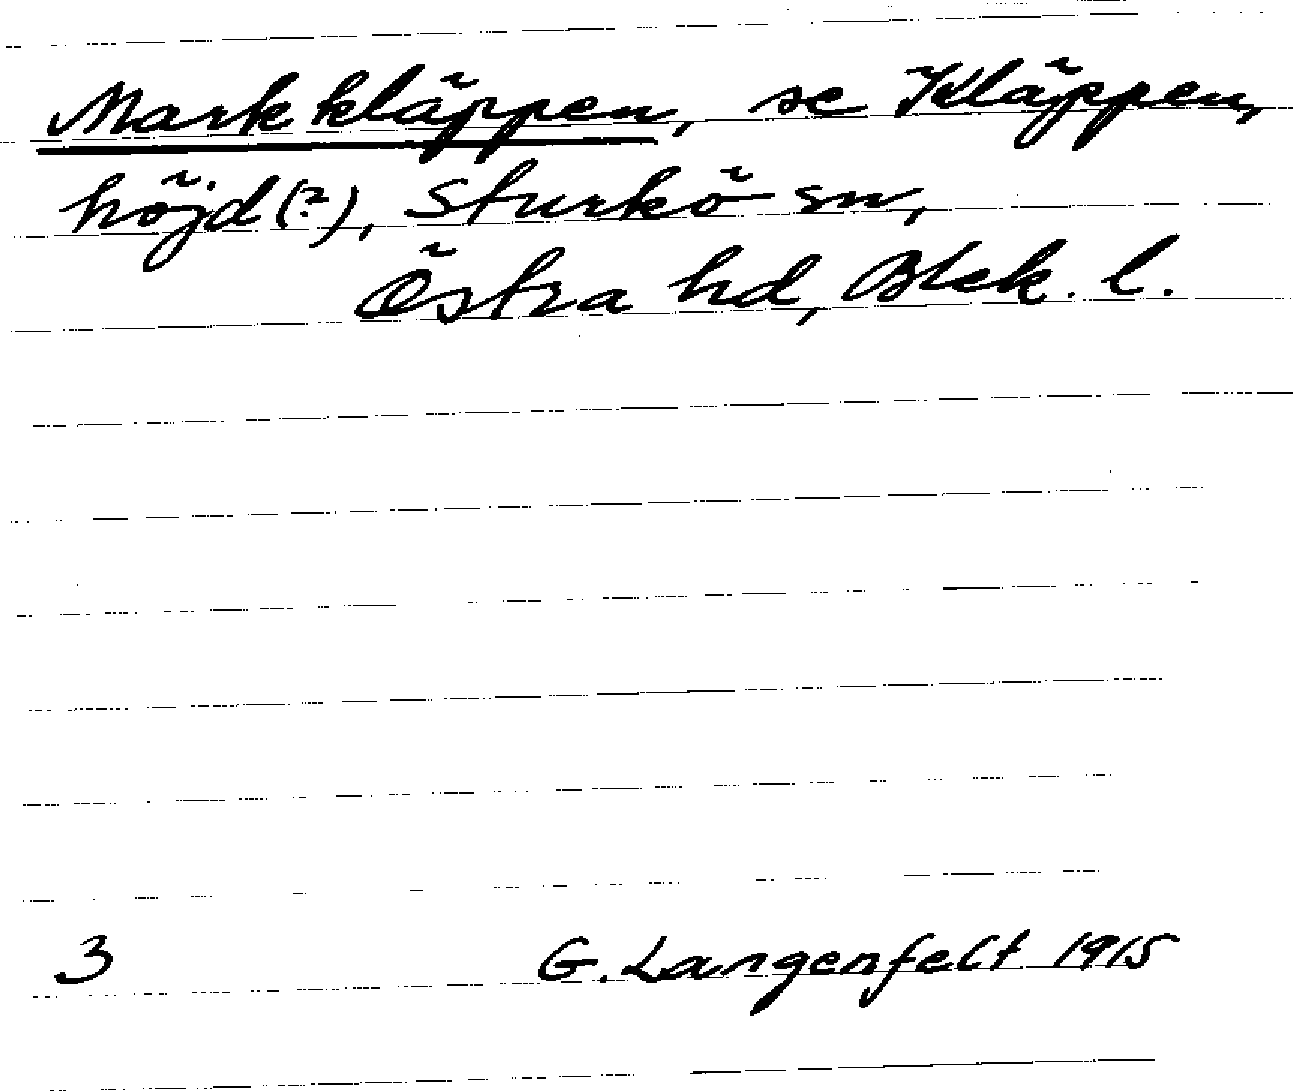 Markkläppen, se Kläppen,
höjd(?), Sturkö sn,
Östra hd, Blek. l.
3 G. Langenfelt 1915